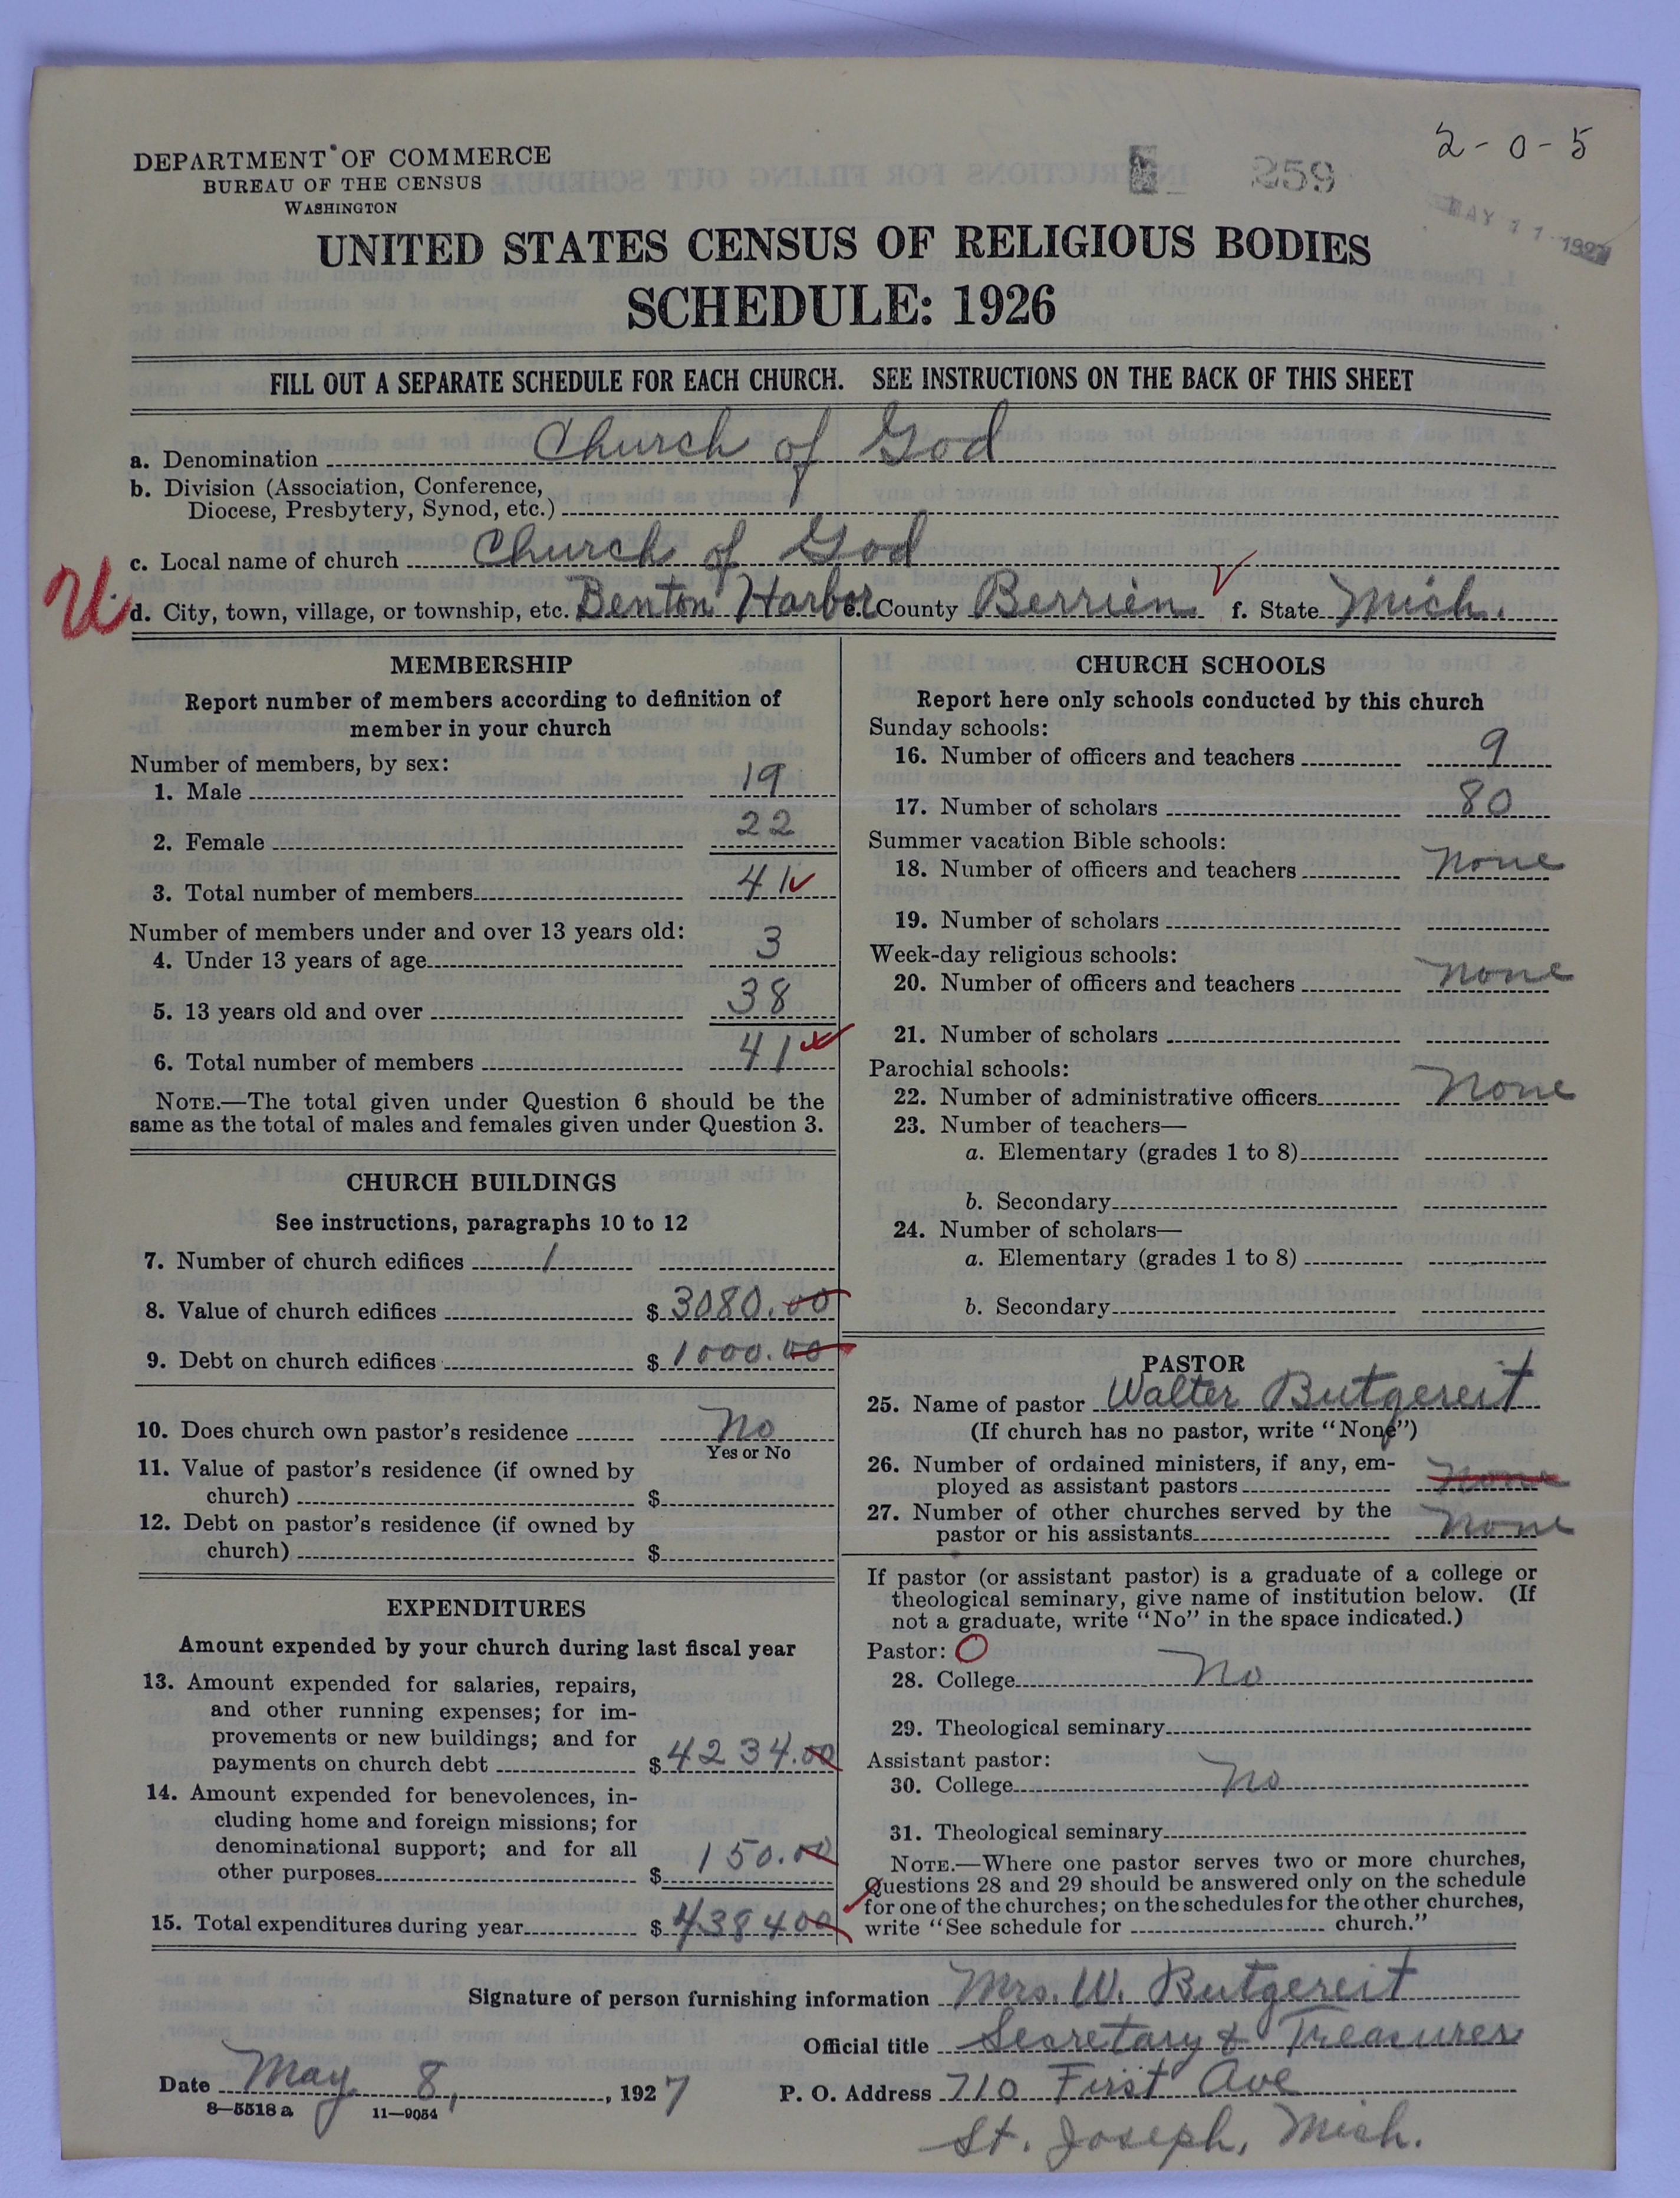 2-0-5
DEPARTMENT OF COMMERCE
BUREAU OF THE CENSUS
WASHINGTON
259
MAY 11 1927
UNITED STATES CENSUS OF RELIGIOUS BODIES
SCHEDULE: 1926
FILL OUT A SEPARATE SCHEDULE FOR EACH CHURCH. SEE INSTRUCTIONS ON THE BACK OF THIS SHEET
a. Denomination Church of God
b. Division (Association, Conference,
Diocese, Presbytery, Synod, etc.)
c. Local name of church Church of God
U
d. City, town, village, or township, etc. Benton Harbor e. County Berrien f. State Mich.
MEMBERSHIP
Report number of members according to definition of
member in your church
Number of members, by sex:
1. Male 19
2. Female 22
3. Total number of members 41
Number of members under and over 13 years old:
4. Under 13 years of age 3
5. 13 years old and over 38
6. Total number of members 41
NOTE.—The total given under Question 6 should be the
same as the total of males and females given under Question 3.
CHURCH BUILDINGS
See instructions, paragraphs 10 to 12
7. Number of church edifices 1
8. Value of church edifices $ 3080.00
9. Debt on church edifices $ 1000.00
10. Does church own pastor's residence No
Yes or No
11. Value of pastor's residence (if owned by
church) $
12. Debt on pastor's residence (if owned by
church) $
EXPENDITURES
Amount expended by your church during last fiscal year
13. Amount expended for salaries, repairs,
and other running expenses; for im-
provements or new buildings; and for
payments on church debt $ 4234.00
14. Amount expended for benevolences, in-
cluding home and foreign missions; for
denominational support; and for all
other purposes $ 150.00
15. Total expenditures during year $ 438400
CHURCH SCHOOLS
Report here only schools conducted by this church
Sunday schools:
16. Number of officers and teachers 9
17. Number of scholars 80
Summer vacation Bible schools:
18. Number of officers and teachers none
19. Number of scholars
Week-day religious schools:
20. Number of officers and teachers none
21. Number of scholars
Parochial schools:
22. Number of administrative officers none
23. Number of teachers—
a. Elementary (grades 1 to 8)
b. Secondary
24. Number of scholars—
a. Elementary (grades 1 to 8)
b. Secondary
PASTOR
25. Name of pastor Walter Butgereit
(If church has no pastor, write "None")
26. Number of ordained ministers, if any, em-
ployed as assistant pastors none
27. Number of other churches served by the
pastor or his assistants none
If pastor (or assistant pastor) is a graduate of a college or
theological seminary, give name of institution below. (If
not a graduate, write "No" in the space indicated.)
Pastor: O
28. College No
29. Theological seminary
Assistant pastor:
30. College No
31. Theological seminary
NOTE.—Where one pastor serves two or more churches,
Questions 28 and 29 should be answered only on the schedule
for one of the churches; on the schedules for the other churches,
write "See schedule for church."
Signature of person furnishing information Mrs. W. Butgereit
Official title Secretary & Treasurer
Date May 8, 1927 P. O. Address 710 First Ave
8—5518 a 11—9054
St. Joseph, Mich.